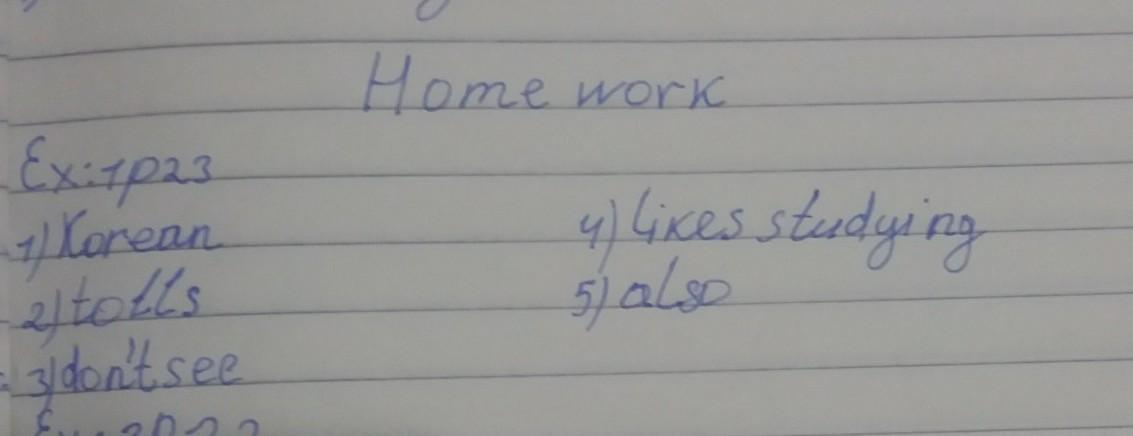 Home work
Ex:1p23
1) Korean
2) tolls
3) don't see
4) likes studying
5) also